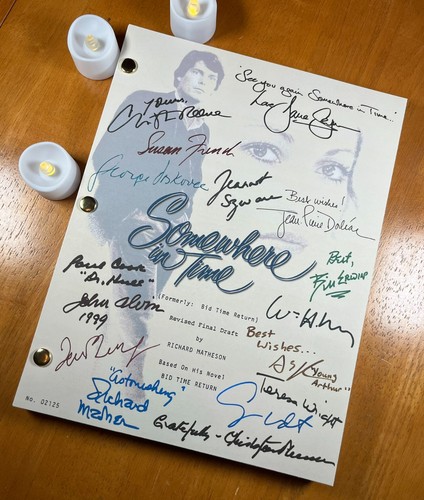 "See you again Somewhere in Time..."
Love, Jane Seymour
Yours,
Christopher Reeve
Susan French
George Voskovec
Jeannot
Szwarc
Best wishes!
Jean-Pierre Dorléac
Somewhere
in Time
Best,
Bill Erwin
Paul Cook
"Dr. House"
John Alvin
1999
(Formerly: Bid Time Return)
Revised Final Draft
by
RICHARD MATHESON
Based On His Novel
BID TIME RETURN
Best
Wishes...
"Young
Arthur"
Teresa Wright
"Astonishing"
Richard
Matheson
No. 02125
Gratefully - Christopher Plummer